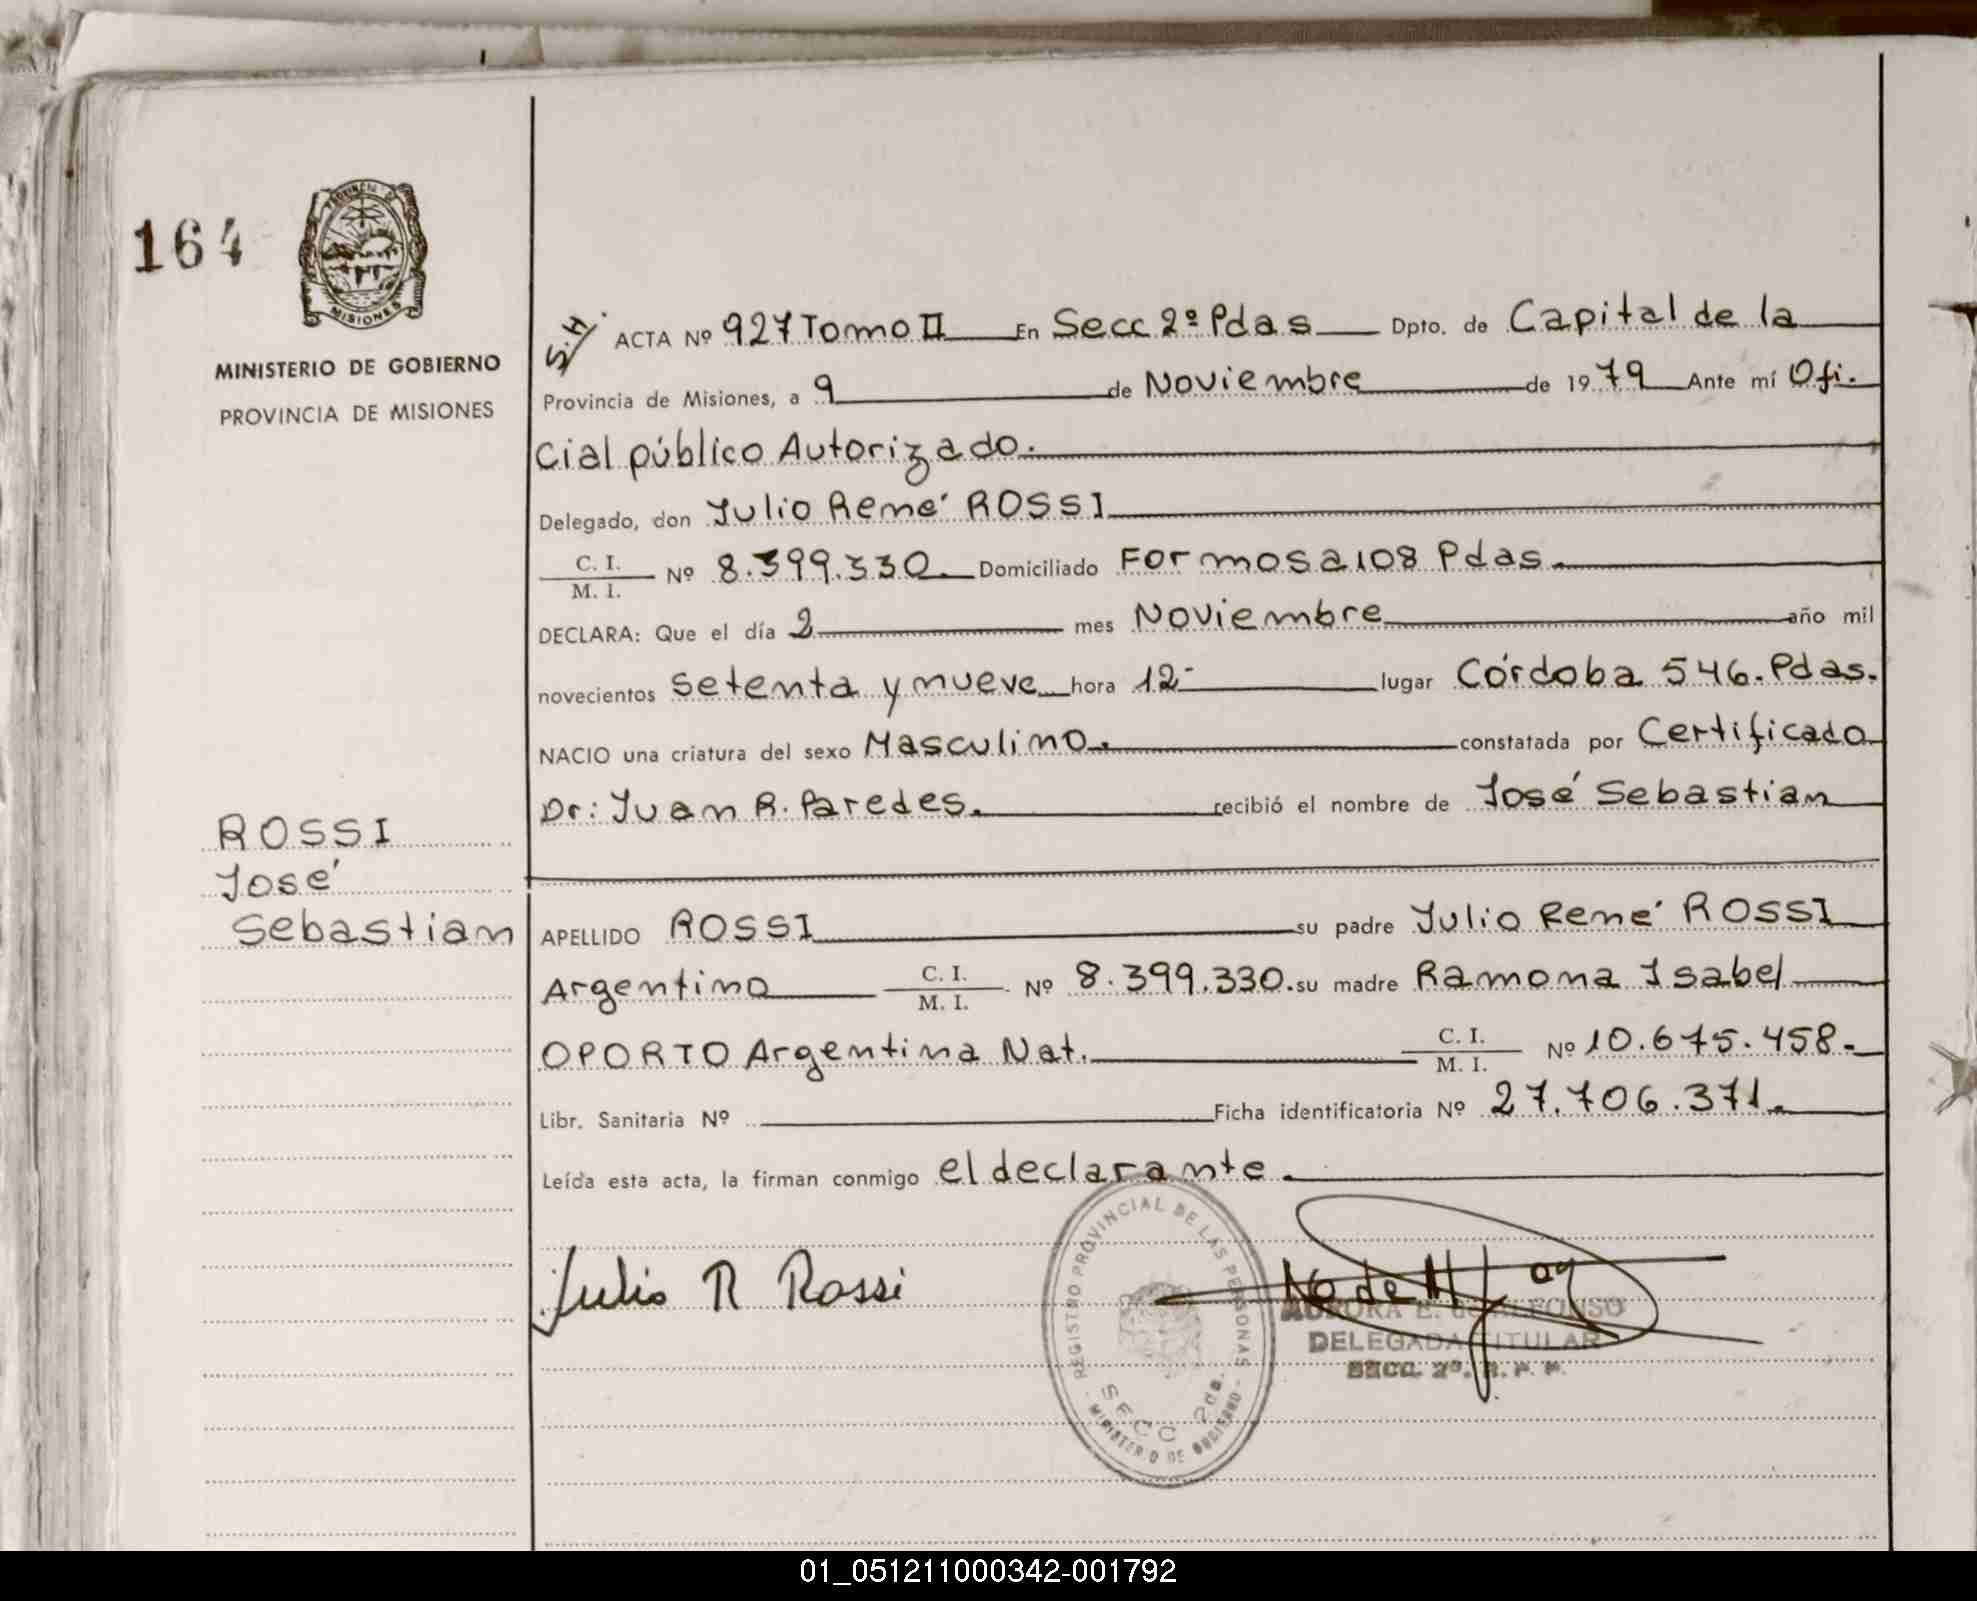 164
PROVINCIA DE
MISIONES
MINISTERIO DE GOBIERNO
PROVINCIA DE MISIONES
S.H.
ACTA Nº 927 Tomo II En Secc 2º Pdas Dpto. de Capital de la
Provincia de Misiones, a 9 de Noviembre de 1979 Ante mí Ofi.
cial público Autorizado.
Delegado, don Julio René ROSSI
C. I.
M. I. Nº 8.399.330. Domiciliado Formosa 108 Pdas.
DECLARA: Que el día 2 mes Noviembre año mil
novecientos setenta y nueve hora 12- lugar Córdoba 546. Pdas.
NACIO una criatura del sexo Masculino. constatada por Certificado
Dr: Juan R. Paredes. recibió el nombre de José Sebastian
ROSSI
José
Sebastian
APELLIDO ROSSI su padre Julio René ROSSI
Argentino C. I. M. I. Nº 8.399.330. su madre Ramona Isabel
OPORTO Argentina Nat. C. I. M. I. Nº 10.675.458.
Libr. Sanitaria Nº Ficha identificatoria Nº 27.706.371.
Leída esta acta, la firman conmigo el declarante.
Julio R Rossi
REGISTRO PROVINCIAL DE LAS PERSONAS
SECC 2da.
- MINISTERIO DE GOBIERNO -
AURORA E. de ALFONSO
DELEGADA TITULAR
SECC. 2ª. R. P. P.
01_051211000342-001792